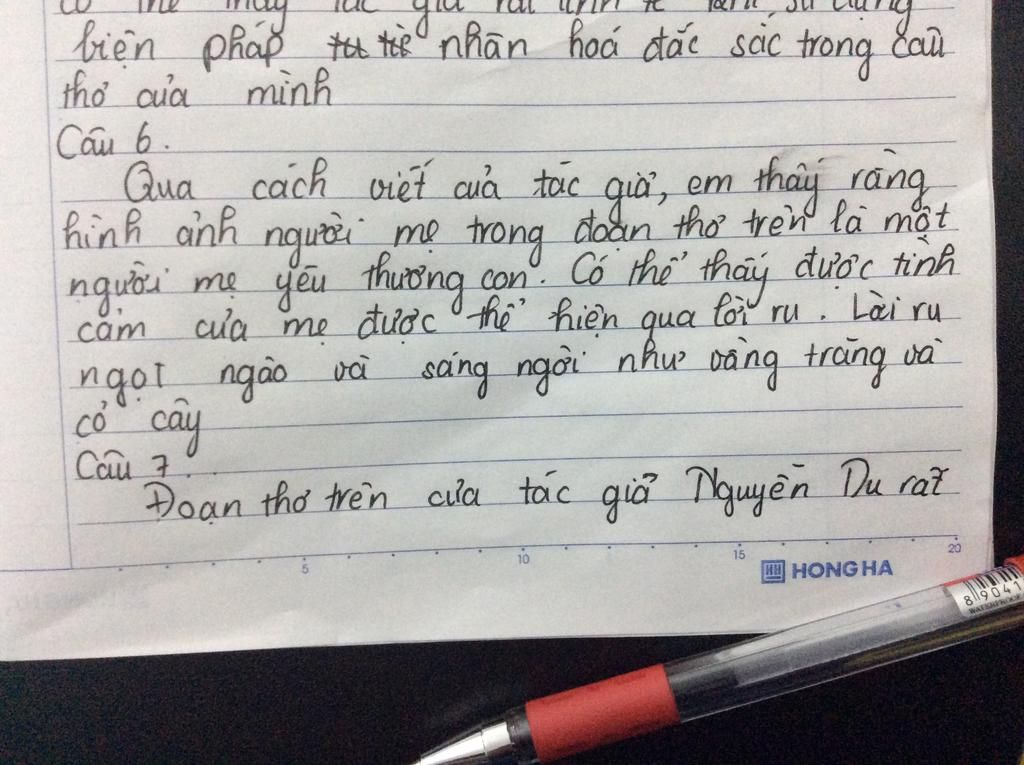 có thể thấy tác giả rất tinh tế làm sử dụng
biện pháp tu từ nhân hoá đắc sắc trong câu
thơ của mình
Câu 6.
Qua cách viết của tác giả, em thấy rằng
hình ảnh người mẹ trong đoạn thơ trên là một
người mẹ yêu thương con. Có thể thấy được tình
cảm của mẹ được thể hiện qua lời ru. Lời ru
ngọt ngào và sáng ngời như vầng trăng và
cỏ cây
Câu 7.
Đoạn thơ trên của tác giả Nguyễn Du rất
5 10 15 20
HH HONG HA
89041
WATERPROOF